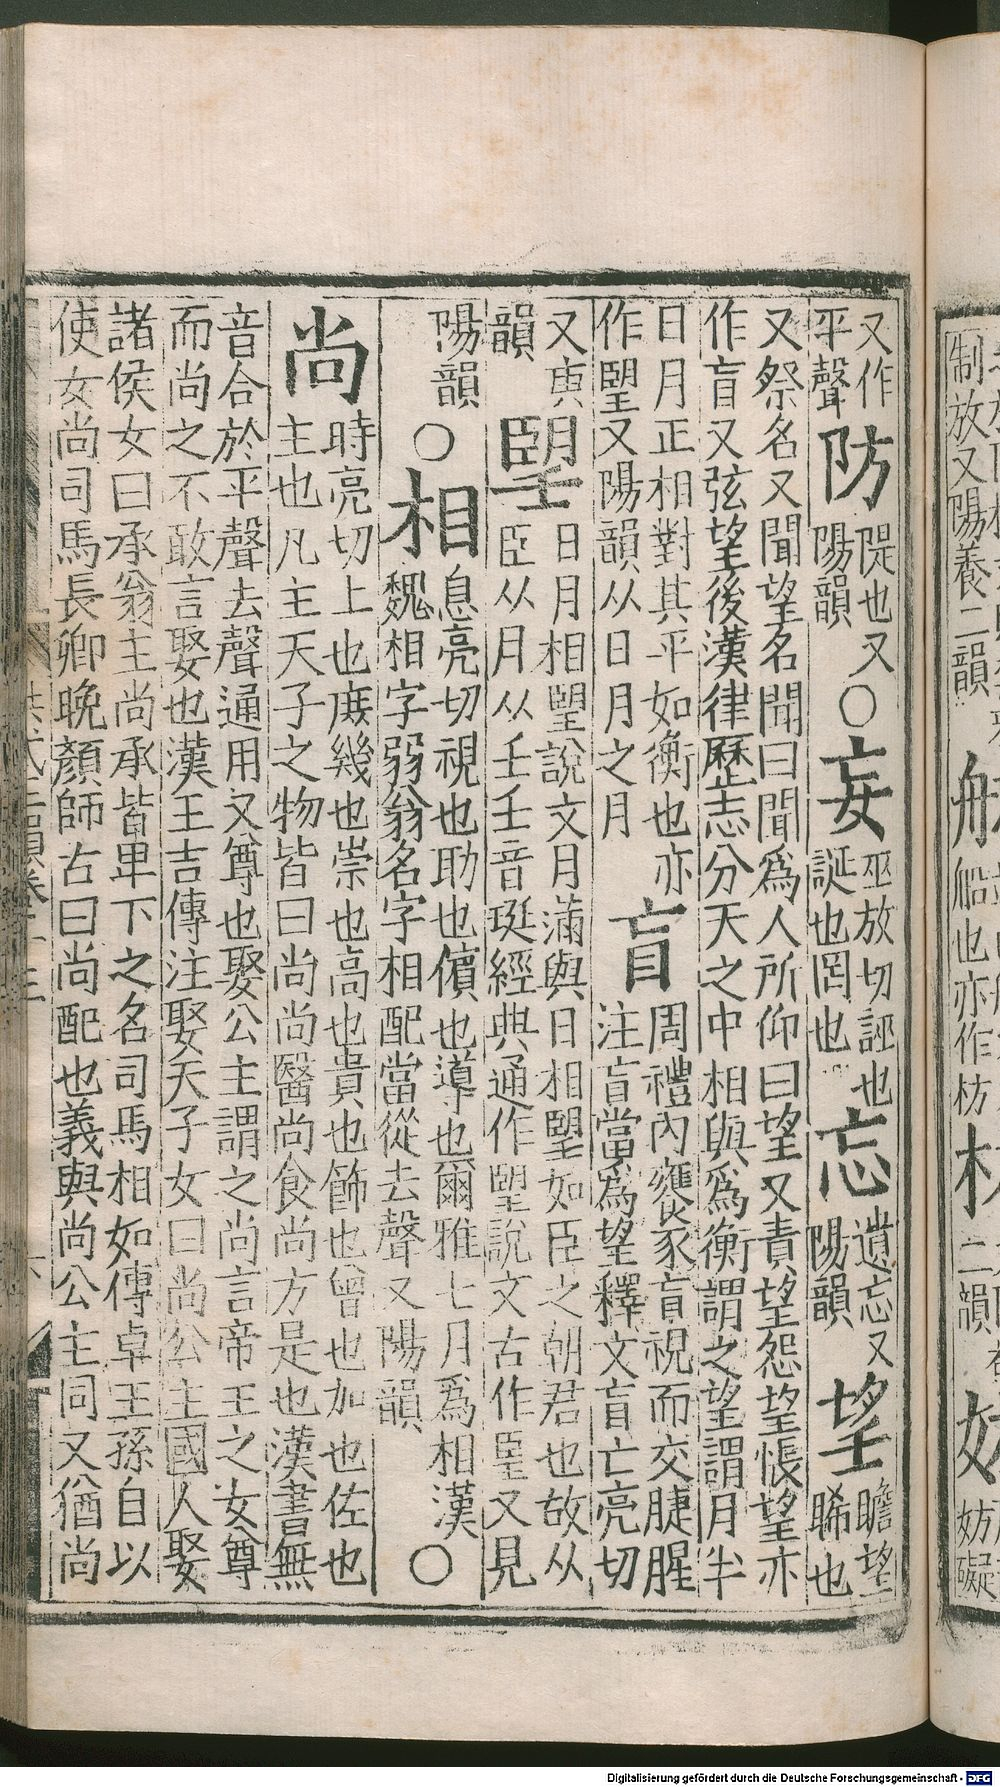 制放又陽養二韻
船也亦作枋
二韻
妨礙
又作平聲防隄也又陽韻○妄巫放切誣也誕也罔也忘遺忘又陽韻望瞻望睎也
又祭名又聞望名聞曰聞爲人所仰曰望又責望怨望悵望亦
作盲又弦望後漢律歷志分天之中相與爲衡謂之望謂月半
日月正相對其平如衡也亦作朢又陽韻从日月之月盲周禮內饔豕盲視而交睫腥注盲當爲望釋文盲亡亮切
又庚韻朢日月相朢說文月滿與日相朢如臣之朝君也故从臣从月从壬壬音珽經典通作朢說文古作𦣠又見
陽韻○相息亮切視也助也儐也導也爾雅七月爲相漢魏相字弱翁名字相配當從去聲又陽韻○
尚時亮切上也庶幾也崇也高也貴也飾也曾也加也佐也主也凡主天子之物皆曰尚尚醫尚食尚方是也漢書無
音合於平聲去聲通用又尊也娶公主謂之尚言帝王之女尊
而尚之不敢言娶也漢王吉傳注娶天子女曰尚公主國人娶
諸侯女曰承翁主尚承皆卑下之名司馬相如傳卓王孫自以
使女尚司馬長卿晚顏師古曰尚配也義與尚公主同又猶尚
Digitalisierung gefördert durch die Deutsche Forschungsgemeinschaft - DFG